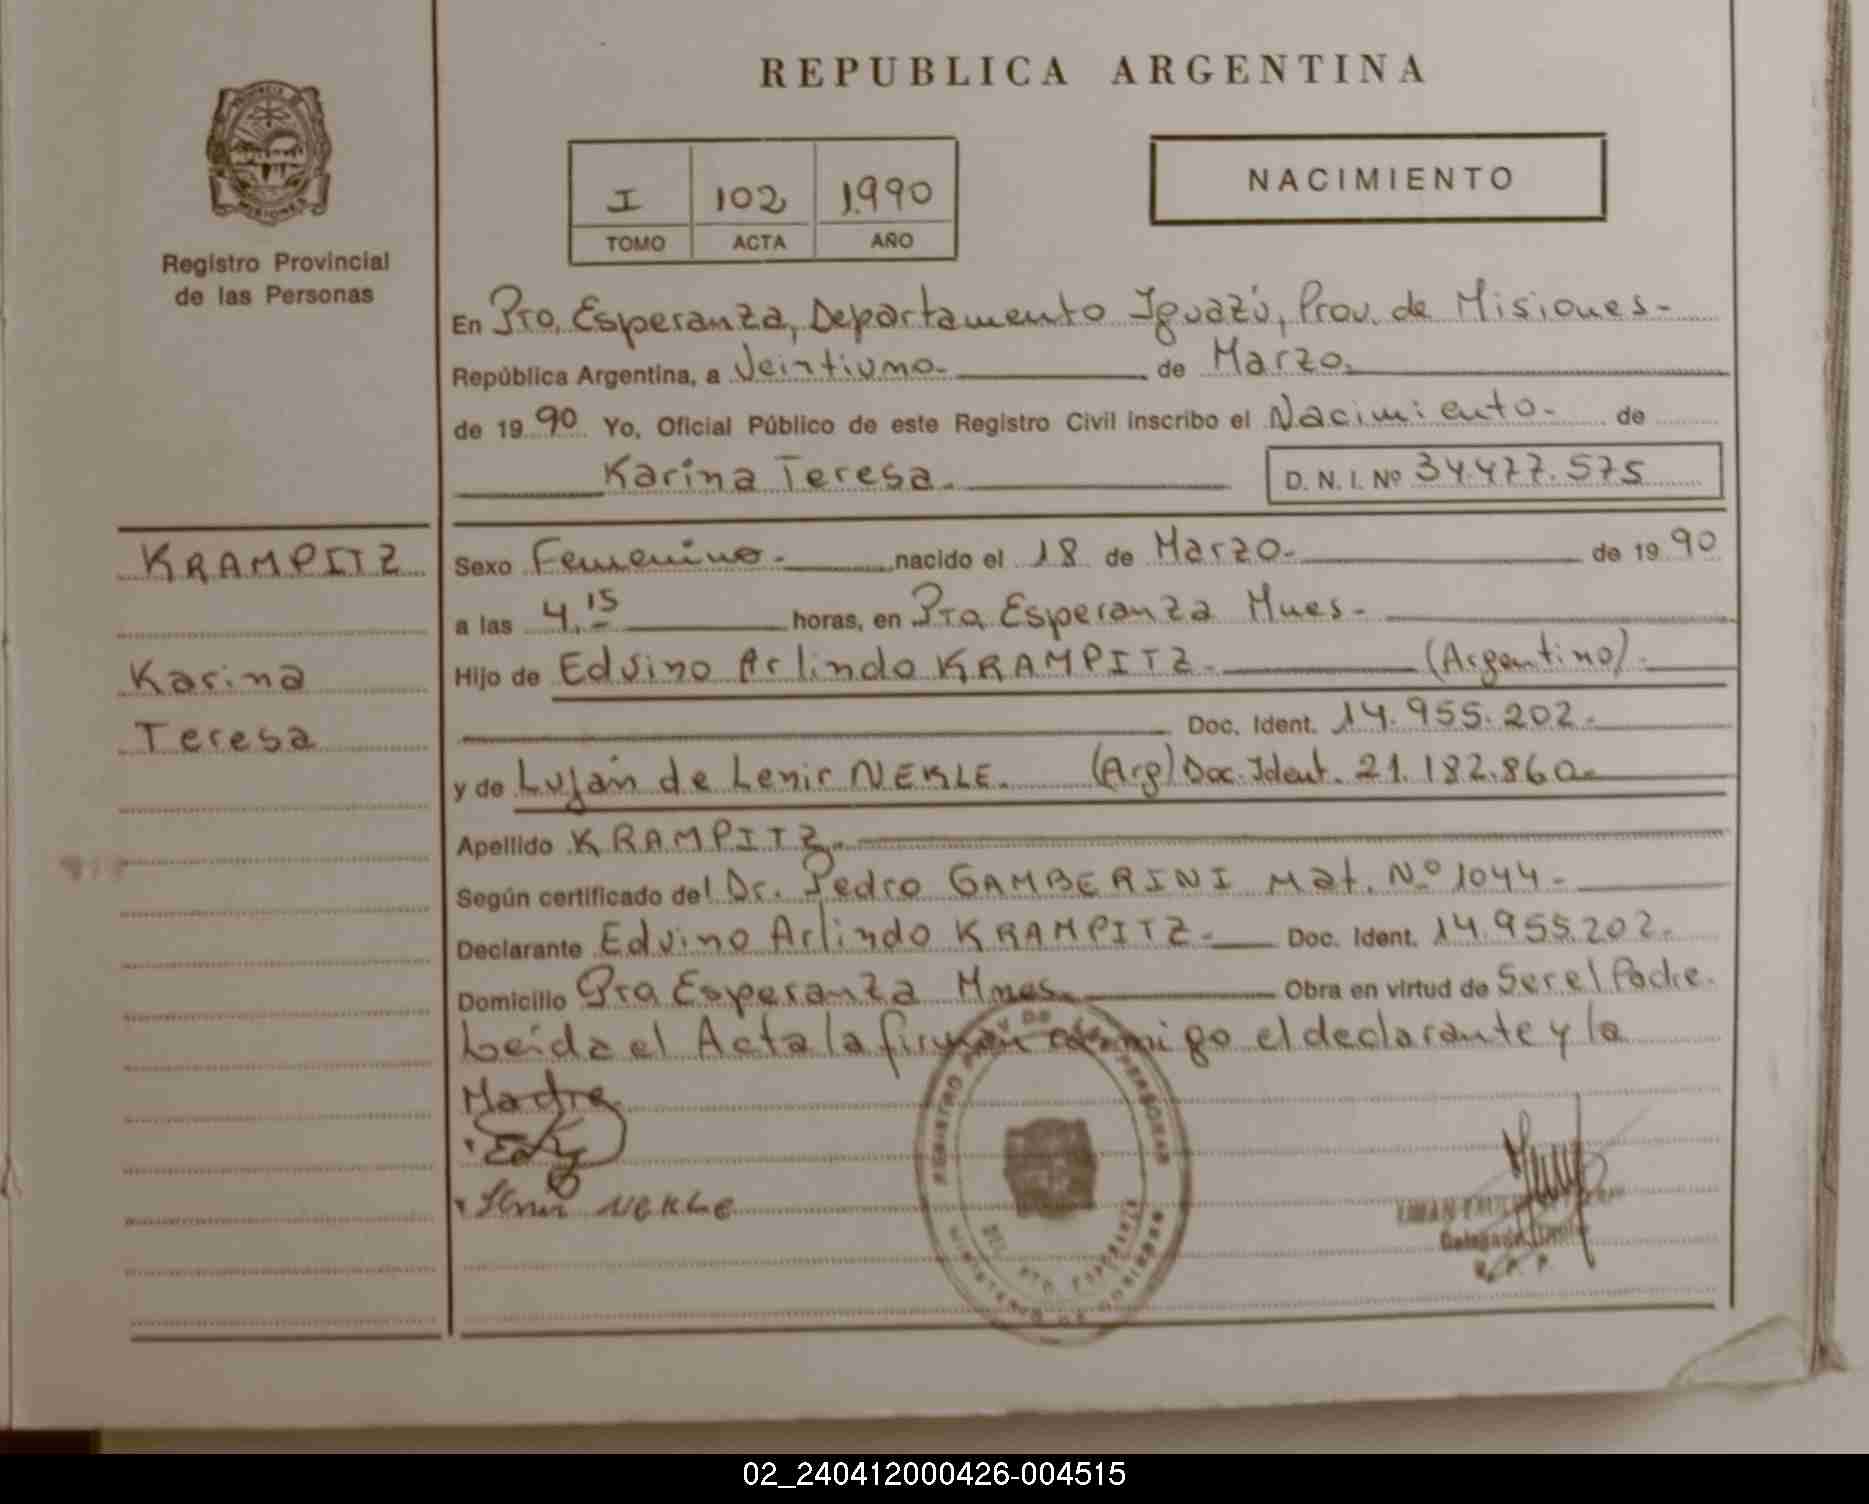 REPUBLICA ARGENTINA
PROVINCIA DE
MISIONES
Registro Provincial
de las Personas
I 102 1.990
TOMO ACTA AÑO
NACIMIENTO
En Pto. Esperanza, Departamento Iguazú, Prov. de Misiones-
República Argentina, a Veintiuno- de Marzo.
de 19 90 Yo, Oficial Público de este Registro Civil inscribo el Nacimiento- de
Karina Teresa. D. N. I. Nº 34.477.575
KRAMPITZ
Karina
Teresa
Sexo Femenino- nacido el 18 de Marzo- de 19 90
a las 4.15 horas, en Pto Esperanza Mnes-
Hijo de Edvino Arlindo KRAMPITZ- (Argentino)-
Doc. Ident. 14.955.202-
y de Luján de Lenir NEKLE. (Arg) Doc. Ident. 21.182.860-
Apellido KRAMPITZ.
Según certificado del Dr. Pedro GAMBERINI Mat. Nº 1044-
Declarante Edvino Arlindo KRAMPITZ- Doc. Ident. 14.955.202-
Domicilio Pto Esperanza Mnes. Obra en virtud de Ser el Padre.
Leida el Acta la firman conmigo el declarante y la
Madre.
Lenir NEKLE
REGISTRO PROV DE LAS PERSONAS
MINISTERIO DE GOBIERNO
PTO. ESPERANZA
R. P. P.
02_240412000426-004515